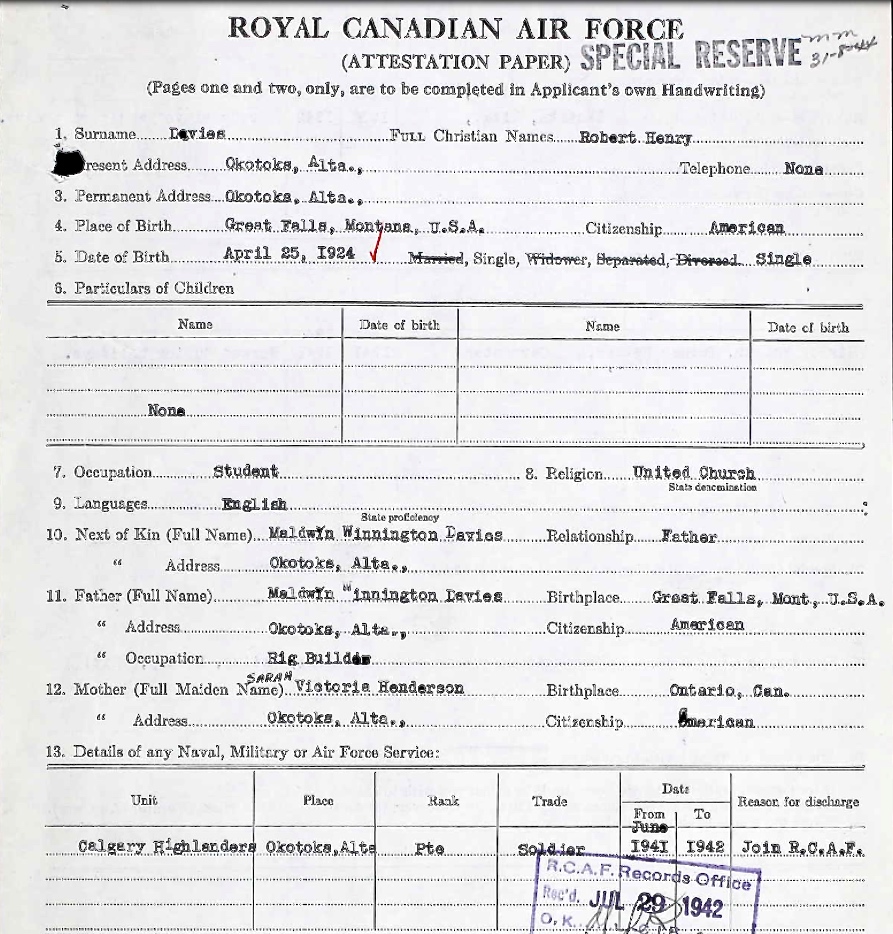 ROYAL CANADIAN AIR FORCE
(ATTESTATION PAPER) SPECIAL RESERVE
(Pages one and two, only, are to be completed in Applicant's own Handwriting)
1. Surname Davies FULL Christian Names Robert Henry
resent Address Okotoks, Alta., Telephone None
3. Permanent Address Okotoks, Alta.,
4. Place of Birth Great Falls, Montana, U.S.A. Citizenship American
5. Date of Birth April 25, I924 Married, Single, Widower, Separated, Divorced Single
6. Particulars of Children
Name Date of birth Name Date of birth
None
7. Occupation Student 8. Religion United Church
State denomination
9. Languages English
State proficiency
10. Next of Kin (Full Name) Maldwyn Winnington Davies Relationship Father
" Address Okotoks, Alta.,
11. Father (Full Name) Maldwyn Winnington Davies Birthplace Great Falls, Mont., U.S.A.
" Address Okotoks, Alta., Citizenship American
" Occupation Rig Builder
SARAH
12. Mother (Full Maiden Name) Victoria Henderson Birthplace Ontario, Can.
" Address Okotoks, Alta., Citizenship American
13. Details of any Naval, Military or Air Force Service:
Unit Place Rank Trade Date Reason for discharge
From To
June
Calgary Highlanders Okotoks,Alta Pte Soldier I94I I942 Join R.C.A.F.
R.C.A.F. Records Office
Rec'd. JUL 29 1942
O.K.